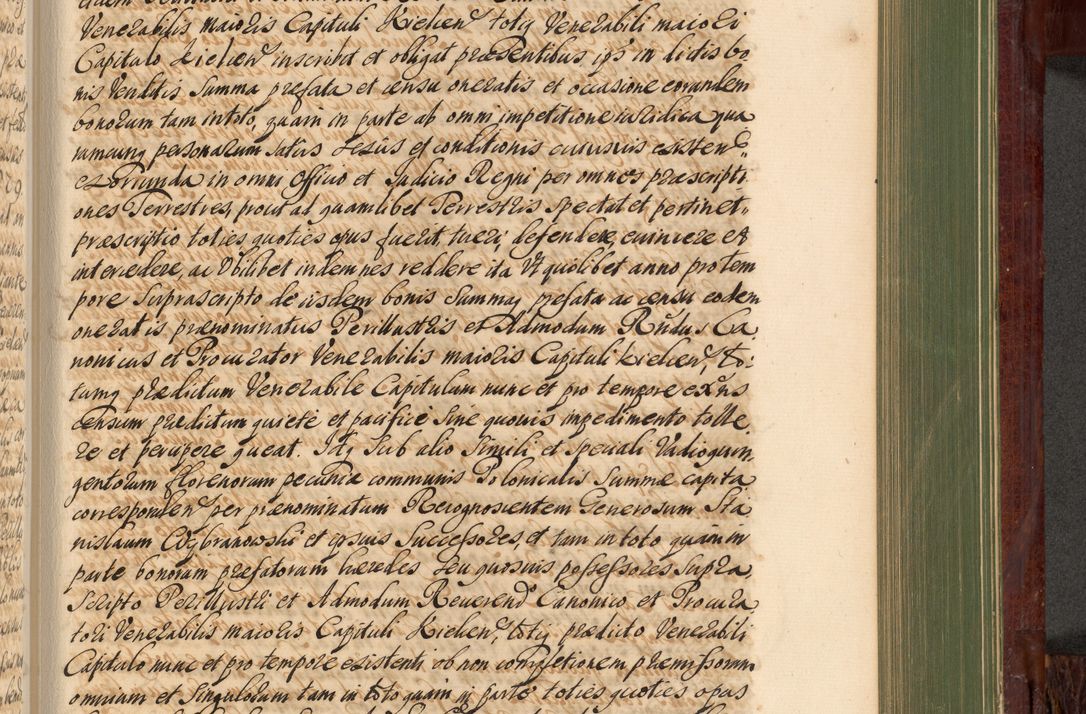 Venerabilis maioris Capituli Kielcen totiq Venerabili maiori
Capitulo Kielcen inscribet et obligat præsentibus, ips in dictis bo
nis Venditis Summa præfata et censu oneratis et occasione eorundem
bonorum tam in toto, quam in parte ab omni impetitione iuridica qua
rumcunq personarum Status Sexus et conditionis cuiusuis existen
es oriunda in omni Officio et Judicio Regni per omnes præscripti
ones Terrestres, prout ad quamlibet Terrestris spectat et pertinet
præscriptio toties quoties opus fuerit, tueri, defendere, euincere et
intercedere, ac Vbilibet indemnes reddere ita Vt quolibet anno pro tem
pore Suprascripto de iisdem bonis Summaq præfata ac censu eodem
oneratis prænominatus Perillustris et Admodum Rndus Ca
nonicus et Procurator Venerabilis maioris Capituli kielcen, to
tumq prædictum Venerabile Capitulum nunc et pro tempore exns
censum prædictum quiete et pacifice sine quouis impedimento tolle
re et percipere queat. Idq Sub alio Simili et Speciali Vadio quin
gentorum florenorum pecuniæ communis Polonicalis Summæ capita
corresponden per prænominatum Recognoscentem Generosum Sta
nislaum Wybranowski et ipsius Successores, et tam in toto quam in
parte bonorum præfatorum hæredes seu quosuis possessores Supra
Scripto Perillustri et Admodum Reuerend Canonico et Procura
tori Venerabilis maioris Capituli Kielcen, totiq prædicto Venerabili
Capitulo nunc et pro tempore existenti ob non completionem præmissorum
omnium et Singulorum tam in toto quam in parte toties quoties opus